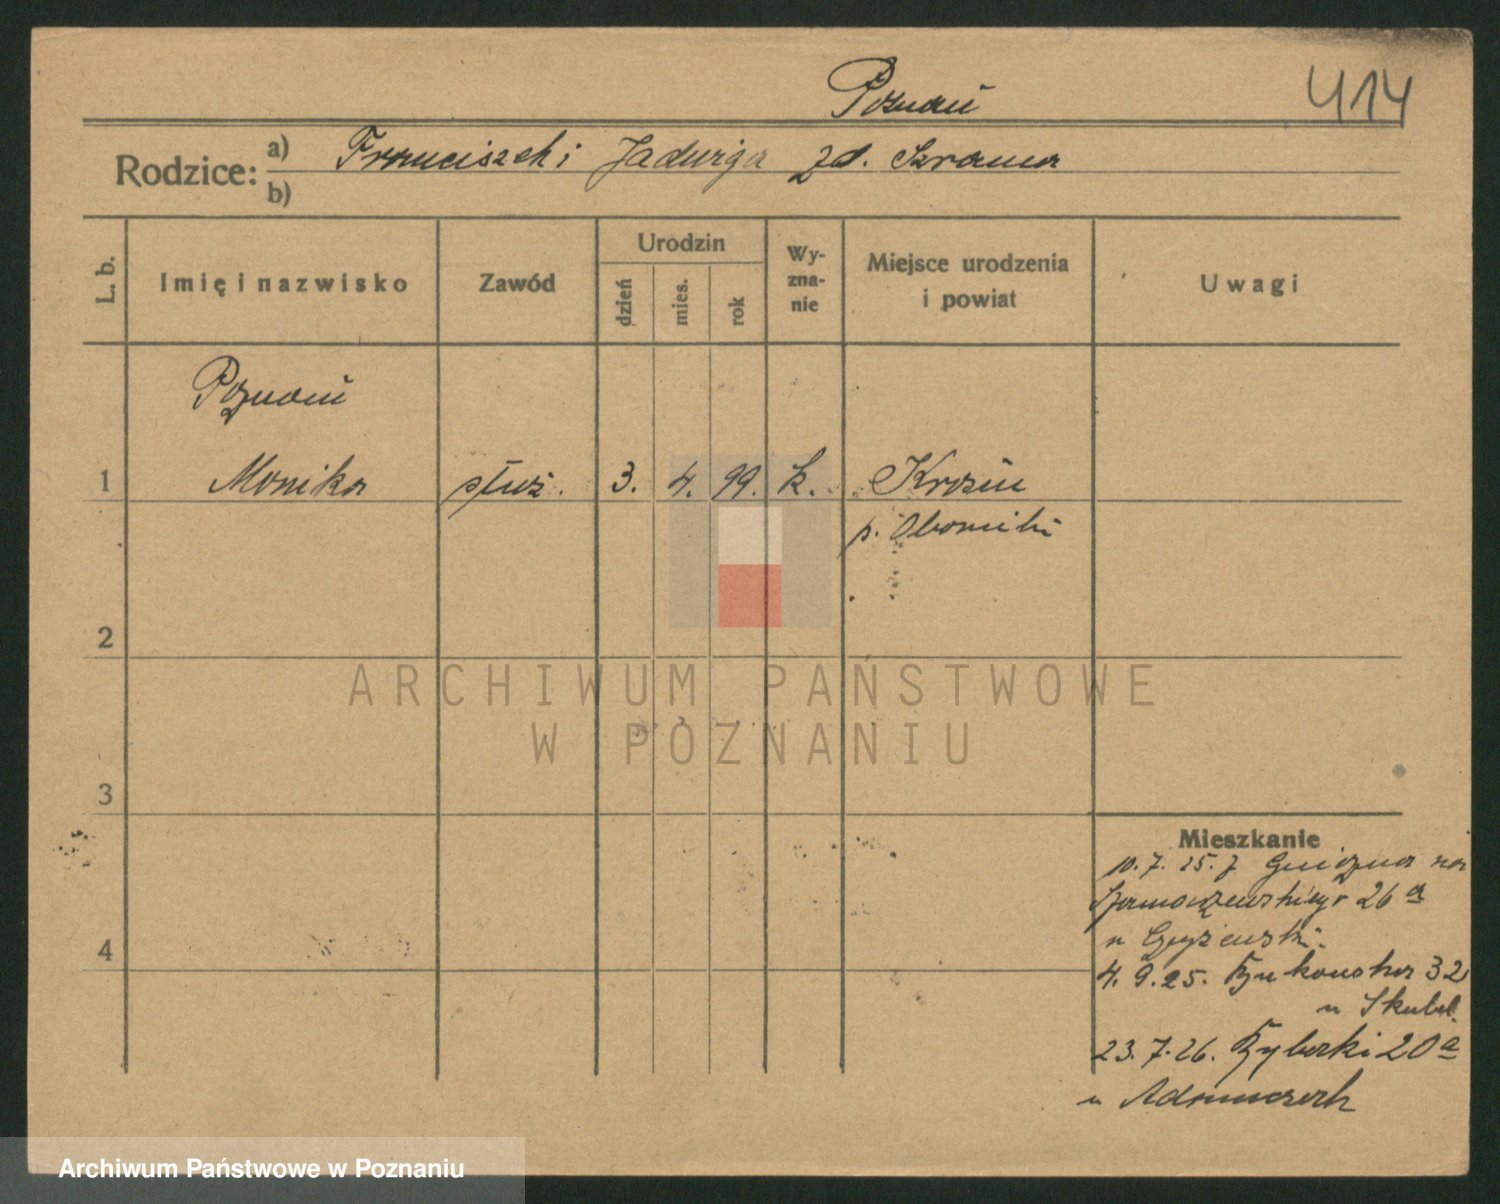 Poznań
414
Rodzice: a) Franciszek i Jadwiga zd. Szrama
b)
L. b.
Imię i nazwisko
Zawód
Urodzin
dzień
mies.
rok
Wy-
zna-
nie
Miejsce urodzenia
i powiat
Uwagi
Poznań
1 Monika służ. 3. 4. 99. k.
p. Oborniki
2
3
4
ARCHIWUM PAŃSTWOWE
W POZNANIU
Mieszkanie
10.7.25. z Gniezna na
26 a
u
4.9.25. 32
u
23.7.26. Rybaki 20 a
u
Archiwum Państwowe w Poznaniu